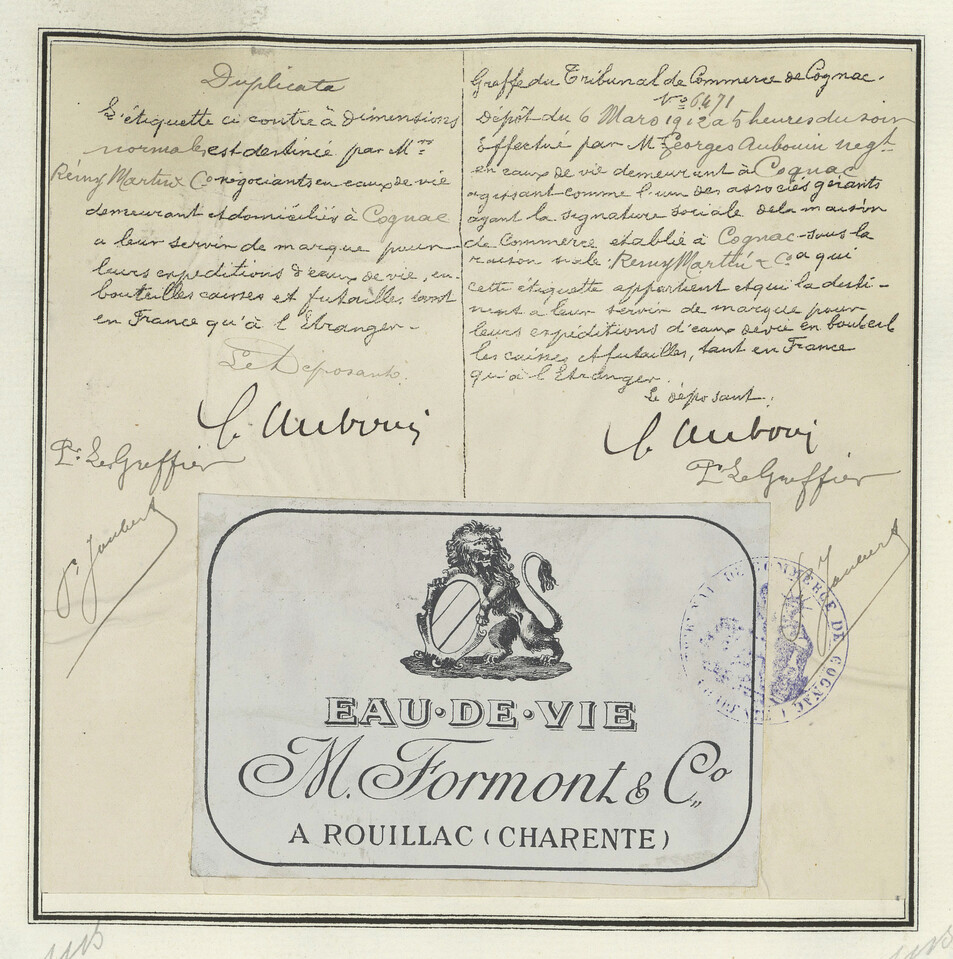 Duplicata
L'étiquette ci contre à dimensions
normales est destinée par Mrs
Rémy Martin & Co négociants en eaux de vie
demeurant et domiciliés à Cognac
a leur servir de marque pour
leurs expéditions d'eaux de vie, en
bouteilles caisses et futailles tant
en France qu'à l'Etranger.
Le Déposant.
G. Aubouin
Pr. Le Greffier
Greffe du Tribunal de Commerce de Cognac.
No 6471
Dépôt du 6 Mars 1912 a 5 heures du soir
Effectué par Mr Georges Aubouin negt
en eaux de vie demeurant à Cognac
agissant comme l'un des associés gérants
ayant la signature sociale de la maison
de Commerce établie à Cognac sous la
raison sociale Rémy Martin & Co a qui
cette étiquette appartient et qui la desti-
nent a leur servir de marque pour
leurs expéditions d'eaux de vie en bouteil
les caisses et futailles, tant en France
qu'à l'Etranger.
Le déposant.
G. Aubouin
Pr Le Greffier
EAU·DE·VIE
M. Formont & Co
A ROUILLAC (CHARENTE)
TRIBUNAL DE COMMERCE DE COGNAC